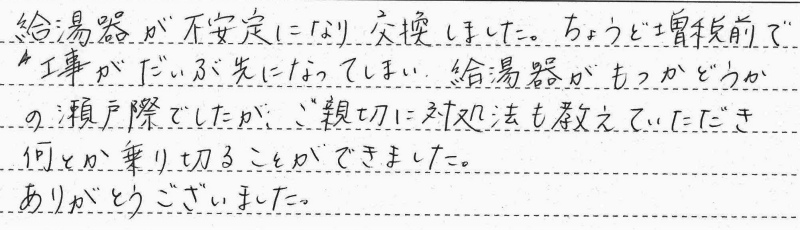 給湯器が不安定になり交換しました。ちょうど増税前で
工事がだいぶ先になってしまい、給湯器がもつかどうか
の瀬戸際でしたが、ご親切に対処法も教えていただき
何とか乗り切ることができました。
ありがとうございました。